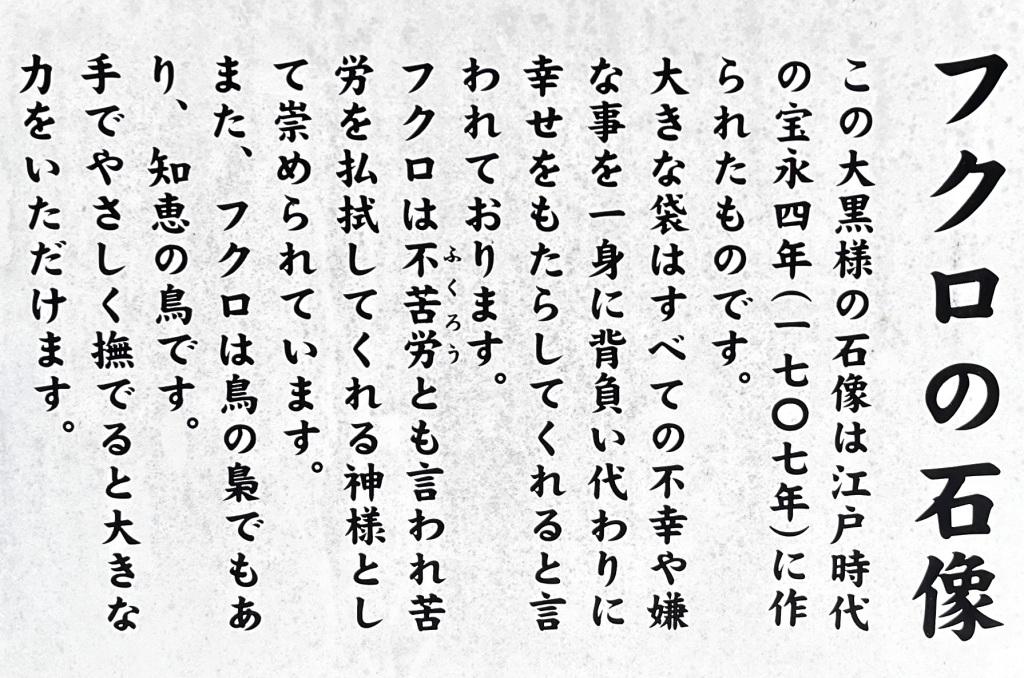 フクロの石像
この大黒様の石像は江戸時代
の宝永四年(一七〇七年)に作
られたものです。
大きな袋はすべての不幸や嫌
な事を一身に背負い代わりに
幸せをもたらしてくれると言
われております。
フクロは不苦労とも言われ苦
ふくろう
労を払拭してくれる神様とし
て崇められています。
また、フクロは鳥の梟でもあ
り、知恵の鳥です。
手でやさしく撫でると大きな
力をいただけます。